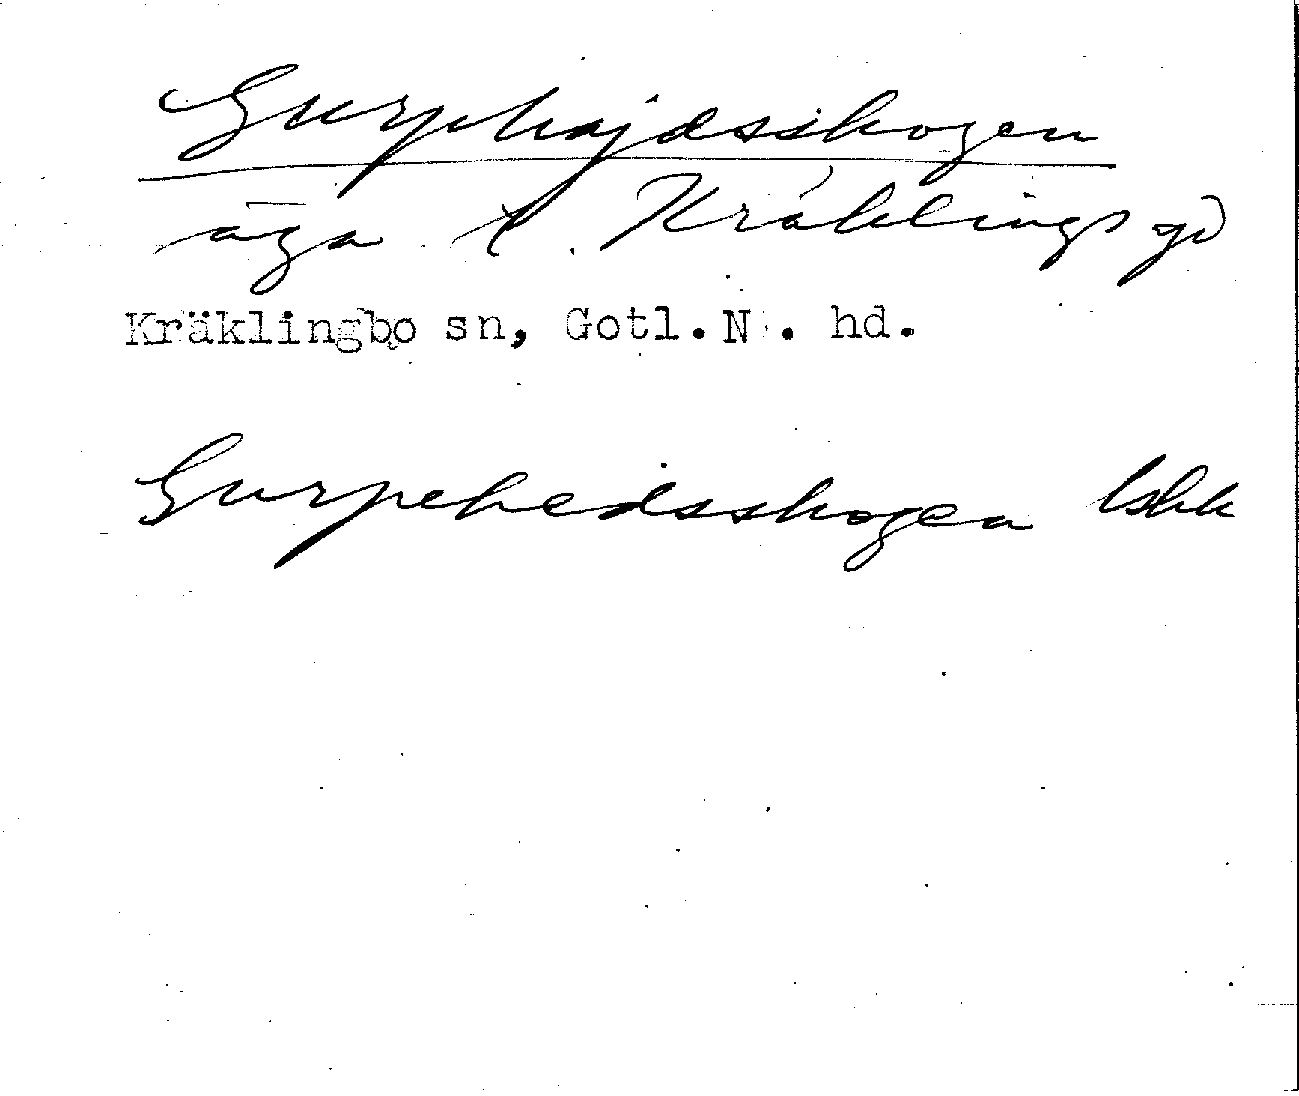 Gurphajdsskogen
äga t. Kräklings gd
Kräklingbo sn, Gotl.N. hd.
Gurpehedsskogen lskk